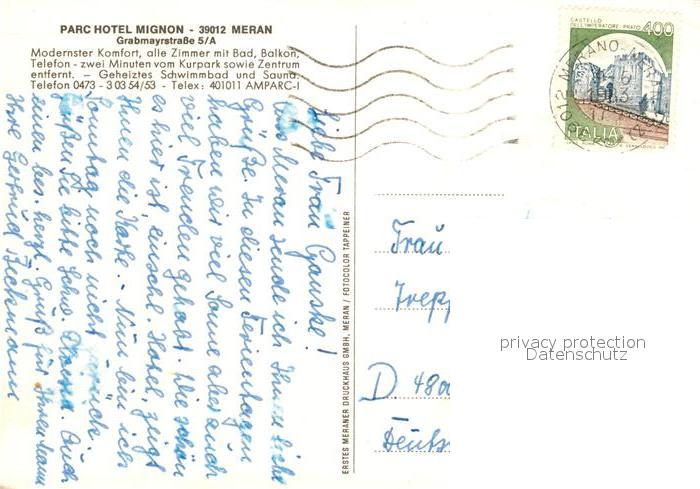 PARC HOTEL MIGNON - 39012 MERAN
Grabmayrstraße 5/A
Modernster Komfort, alle Zimmer mit Bad, Balkon,
Telefon - zwei Minuten vom Kurpark sowie Zentrum
entfernt. – Geheiztes Schwimmbad und Sauna.
Telefon 0473 - 3 03 54/53 - Telex: 401011 AMPARC-I
Liebe Frau
Aus Meran sende ich Ihnen liebe
Grüße. In diesen Ferientagen
haben wir viel Sonne aber auch
viel Freuden gehabt. Wie schön
es hier ist, unsere Hotel, zeigt
Ihnen die Karte. - Nun bin ich
Sonntag noch nicht zurück.
Grüßen Sie bitte Schw. Auch
einen bes. herzl. Gruß für Ihren Mann
Ihre Gertrud
ERSTES MERANER DRUCKHAUS GMBH, MERAN / FOTOCOLOR TAPPEINER
CASTELLO
DELL'IMPERATORE - PRATO
400
ITALIA
Frau
Trepp
D 480
Deuts
privacy protection
Datenschutz